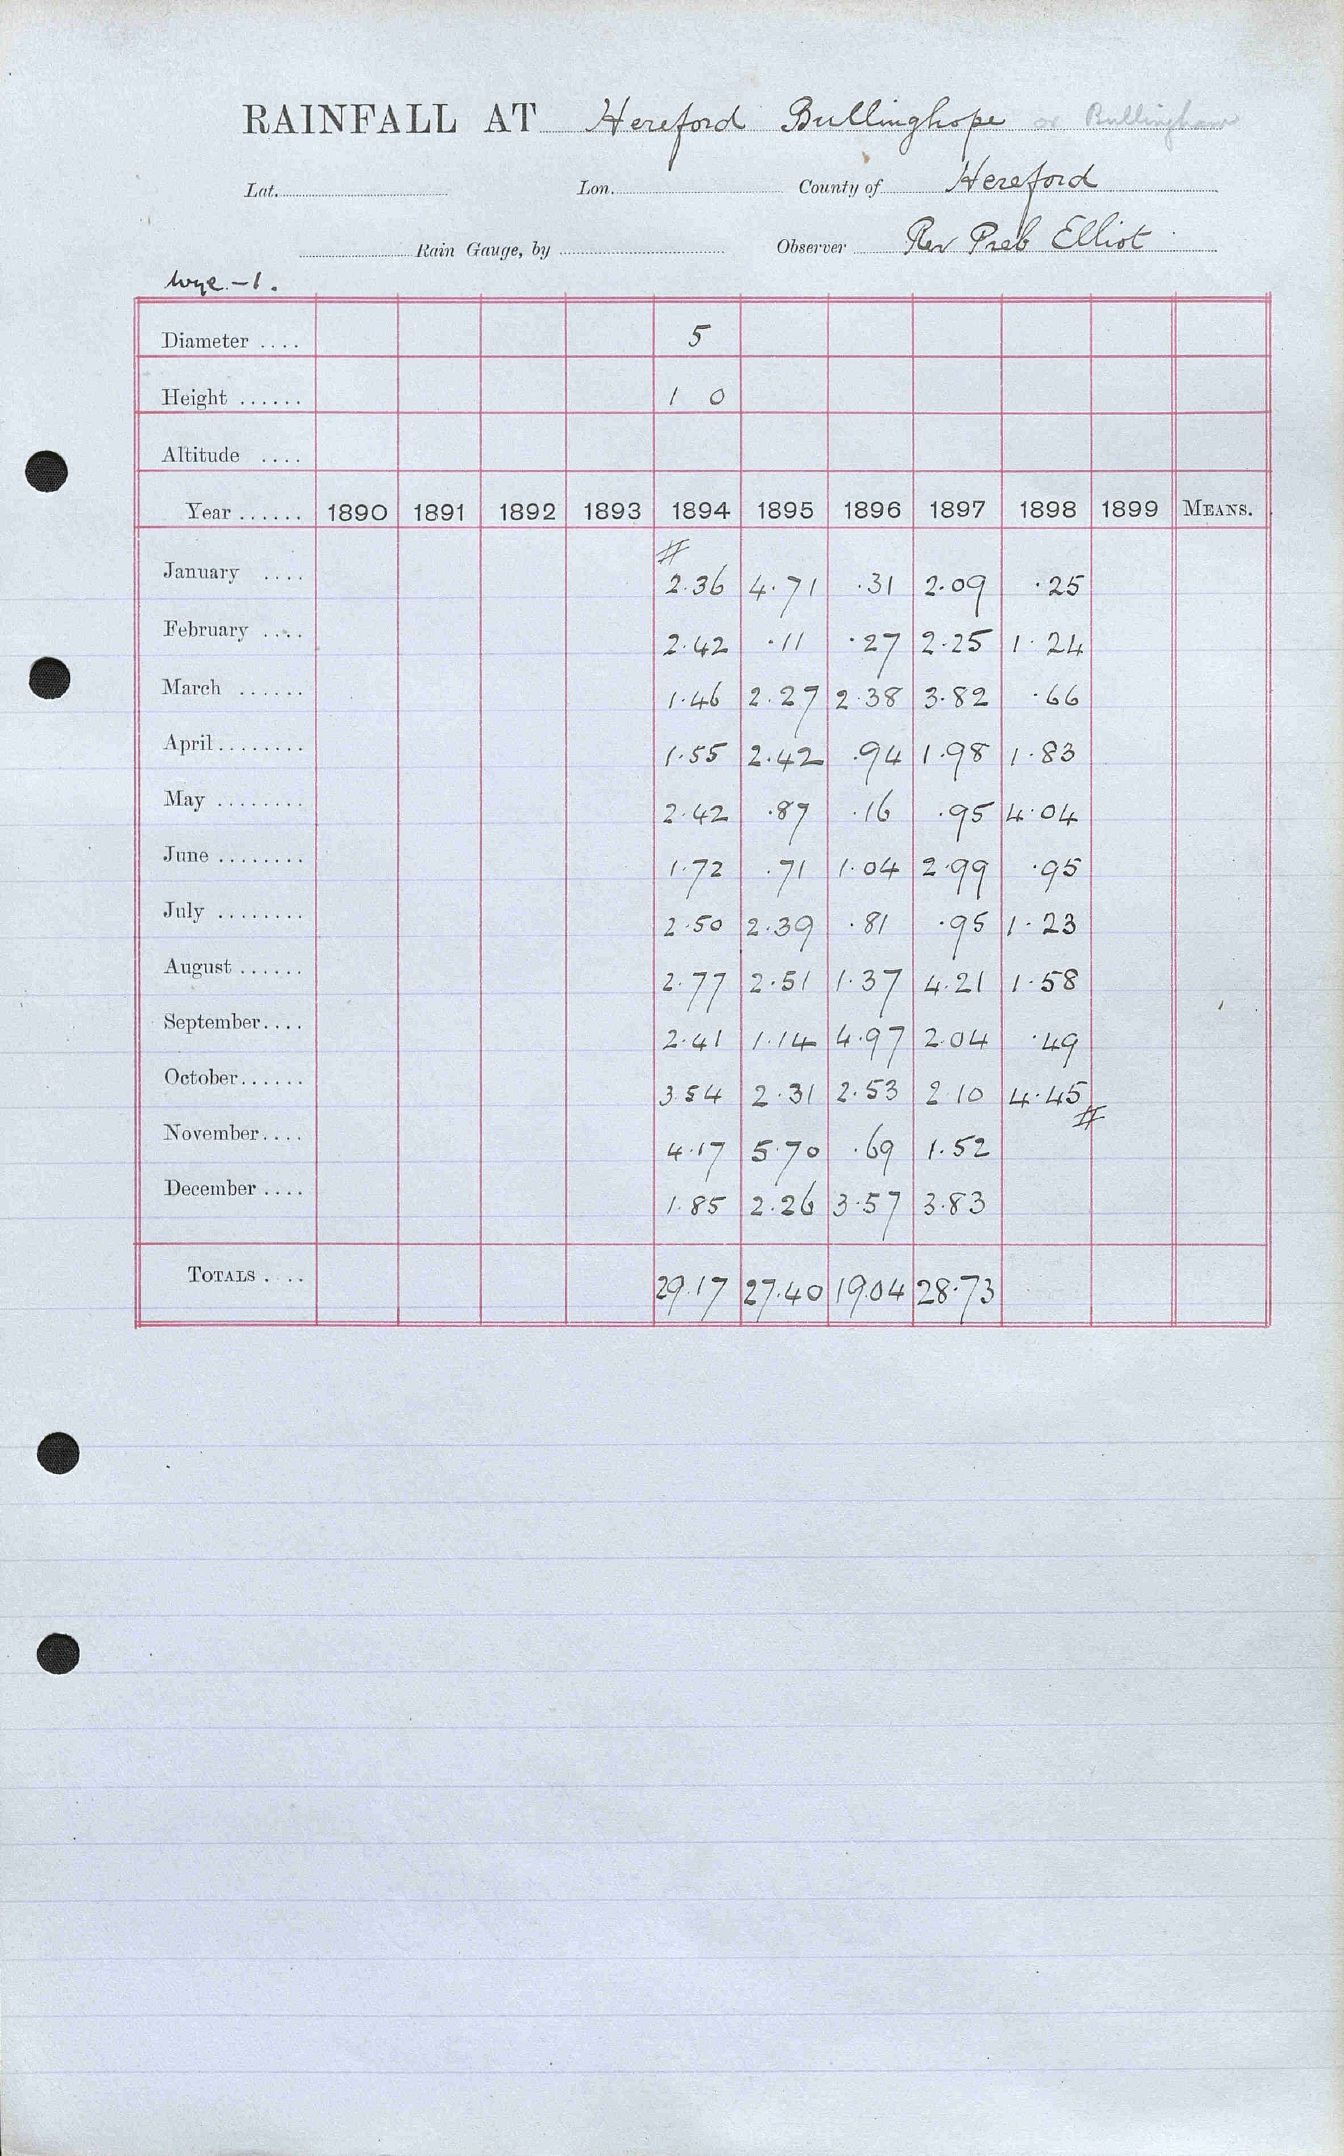 RAINFALL AT Hereford Bullinghope or Bullingham
Lat. Lon. County of Hereford
Rain Gauge, by Observer Rev Preb Elliot
Wye.-1.
Diameter .... 5
Height ...... 1 0
Altitude ....
Year ...... 1890 1891 1892 1893 1894 1895 1896 1897 1898 1899 MEANS.
#
January .... 2.36 4.71 .31 2.09 .25
February .... 2.42 .11 .27 2.25 1.24
March ...... 1.46 2.27 2.38 3.82 .66
April ........ 1.55 2.42 .94 1.98 1.83
May ........ 2.42 .87 .16 .95 4.04
June ........ 1.72 .71 1.04 2.99 .95
July ........ 2.50 2.39 .81 .95 1.23
August ...... 2.77 2.51 1.37 4.21 1.58
September.... 2.41 1.14 4.97 2.04 .49
October...... 3.54 2.31 2.53 2.10 4.45
#
November.... 4.17 5.70 .69 1.52
December .... 1.85 2.26 3.57 3.83
TOTALS .... 29.17 27.40 19.04 28.73